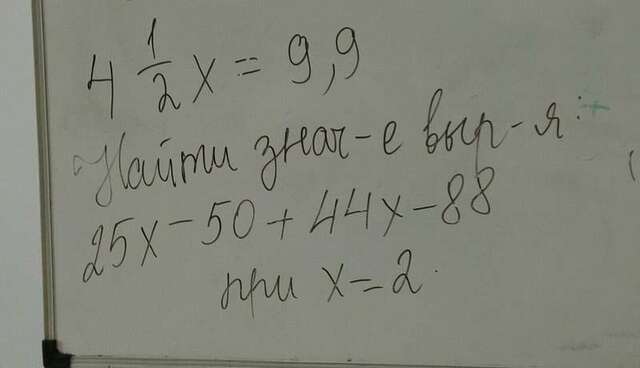 4 1/2 x = 9,9
Найти знач-е выр-я:
25x - 50 + 44x - 88
при x = 2.